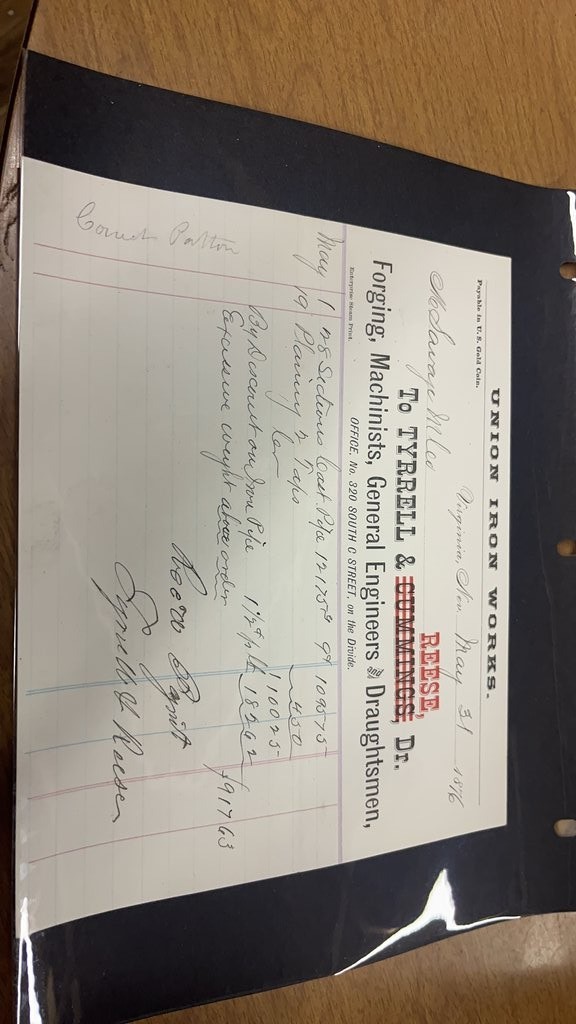 UNION IRON WORKS.
Payable in U. S. Gold Coin.
Virginia, Nev May 31 1876
Savage M Co
REESE,
To TYRRELL & CUMMINGS, Dr.
Forging, Machinists, General Engineers and Draughtsmen,
OFFICE, No. 320 SOUTH C STREET, on the Divide.
Enterprise Steam Print.
May 1 28 Sections Cast Pipe 12175 lbs 9¢ 1095 75
19 Planing 2 Taps 4 50
1100 25
By Discount on Iron Pipe 1½¢ p lb 182 62
Excessive weight above order
$917 63
Correct Patton
Recd Paymt
Tyrrell & Reese